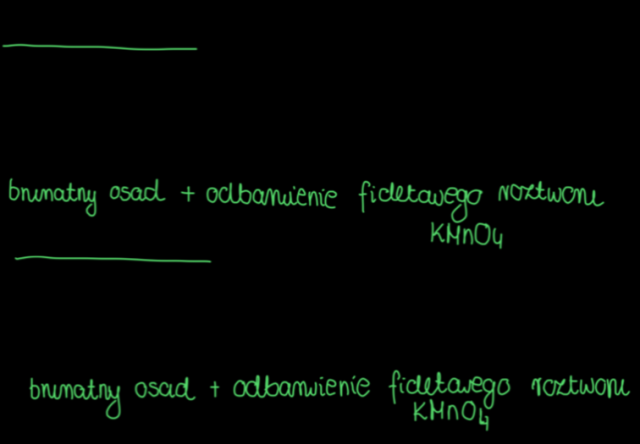 brunatny osad + odbarwienie fioletowego roztworu
KMnO4
brunatny osad + odbarwienie fioletowego roztworu
KMnO4